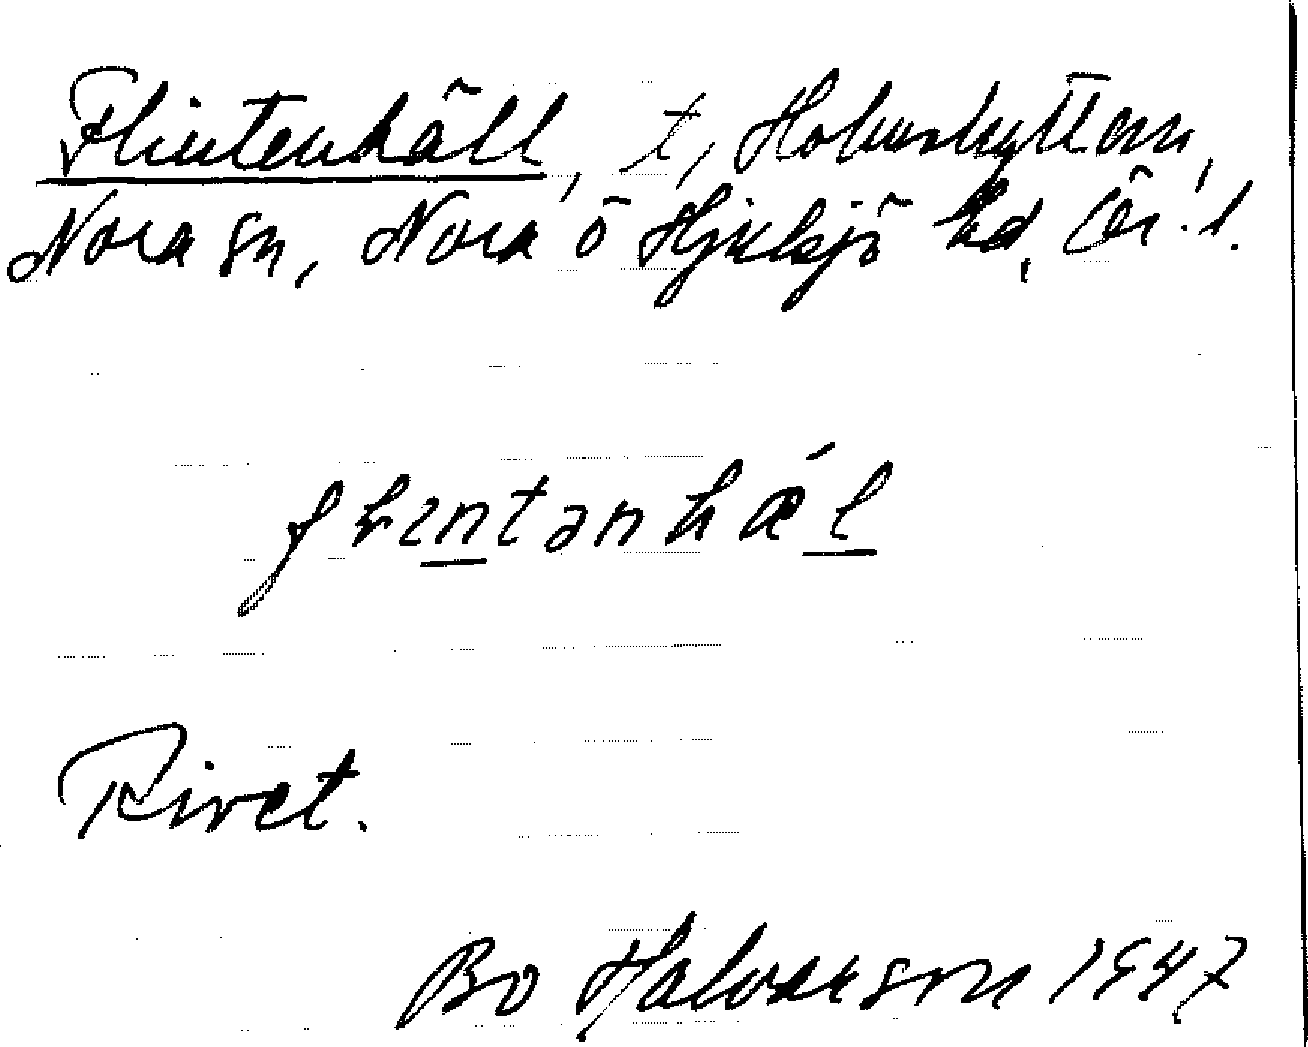 Flintenhäll, t, Holmshyttan,
Nora sn, Nora o Hjulsjö hd, Ör. l.
flintənhǽl
Rivet.
Bo Halvarson 1947